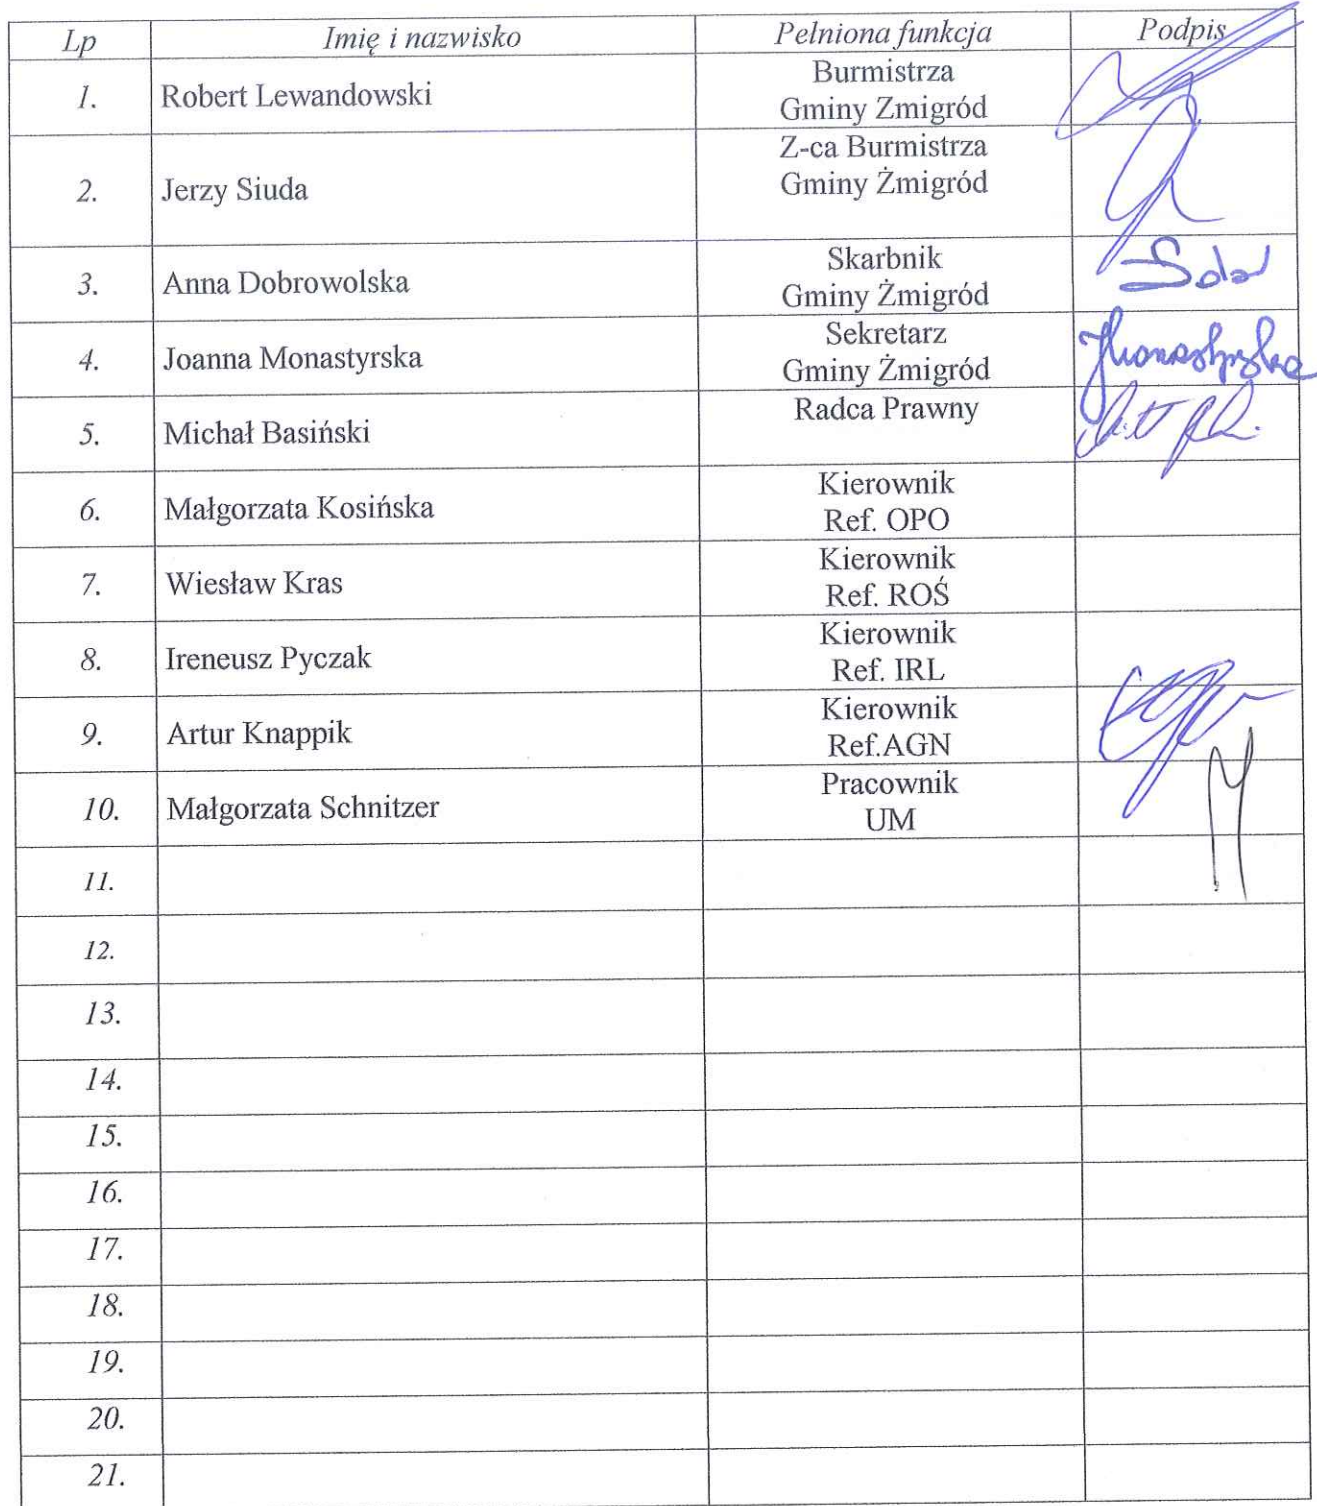 Lp Imię i nazwisko Pełniona funkcja Podpis
1. Robert Lewandowski Burmistrza
Gminy Zmigród
2. Jerzy Siuda Z-ca Burmistrza
Gminy Żmigród
3. Anna Dobrowolska Skarbnik
Gminy Żmigród
4. Joanna Monastyrska Sekretarz
Gminy Żmigród
JMonastyrska
5. Michał Basiński Radca Prawny
6. Małgorzata Kosińska Kierownik
Ref. OPO
7. Wiesław Kras Kierownik
Ref. ROŚ
8. Ireneusz Pyczak Kierownik
Ref. IRL
9. Artur Knappik Kierownik
Ref.AGN
10. Małgorzata Schnitzer Pracownik
UM
11.
12.
13.
14.
15.
16.
17.
18.
19.
20.
21.